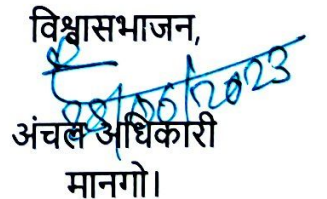 विश्वासभाजन,
28/06/2023
अंचल अधिकारी
मानगो।